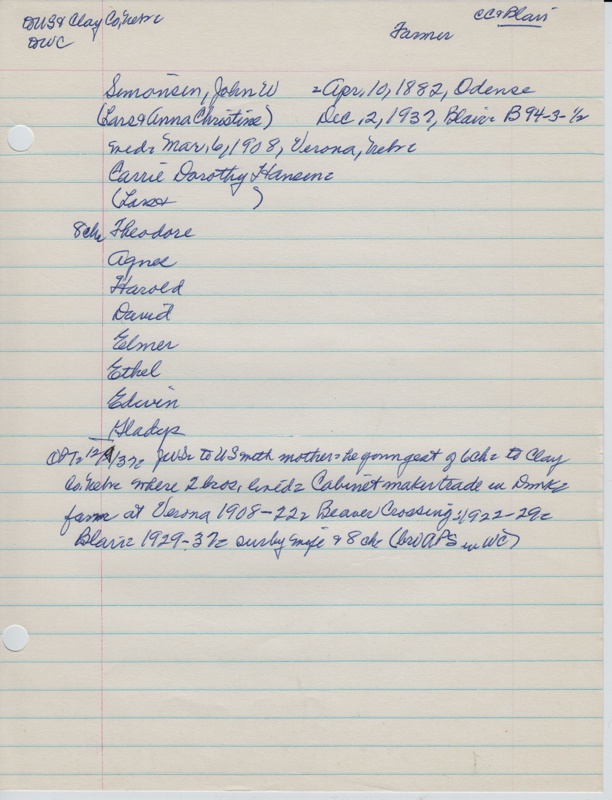 DUS & Clay Co, Nebr
DWC
CC & Blair
Farmer
Simonsen, John W = Apr, 10, 1882, Odense
(Lars & Anna Christine) Dec, 2, 1937, Blair B94-3-½
Mar, 6, 1908, Verona, Nebr
Carrie Dorothy Hansen
(Lars & )
8 ch Theodore
Agnes
Harold
David
Elmer
Ethel
Edwin
Gladys
to US with mother = he youngest of 6 ch = to Clay
Co, Nebr where 2 bros, lived = Cabinet maker trade in Dmk =
farm at Verona 1908-22 = Beaver Crossing, 1922-29 =
Blair 1929-37 = surby wife & 8 ch (bro APS in WC)